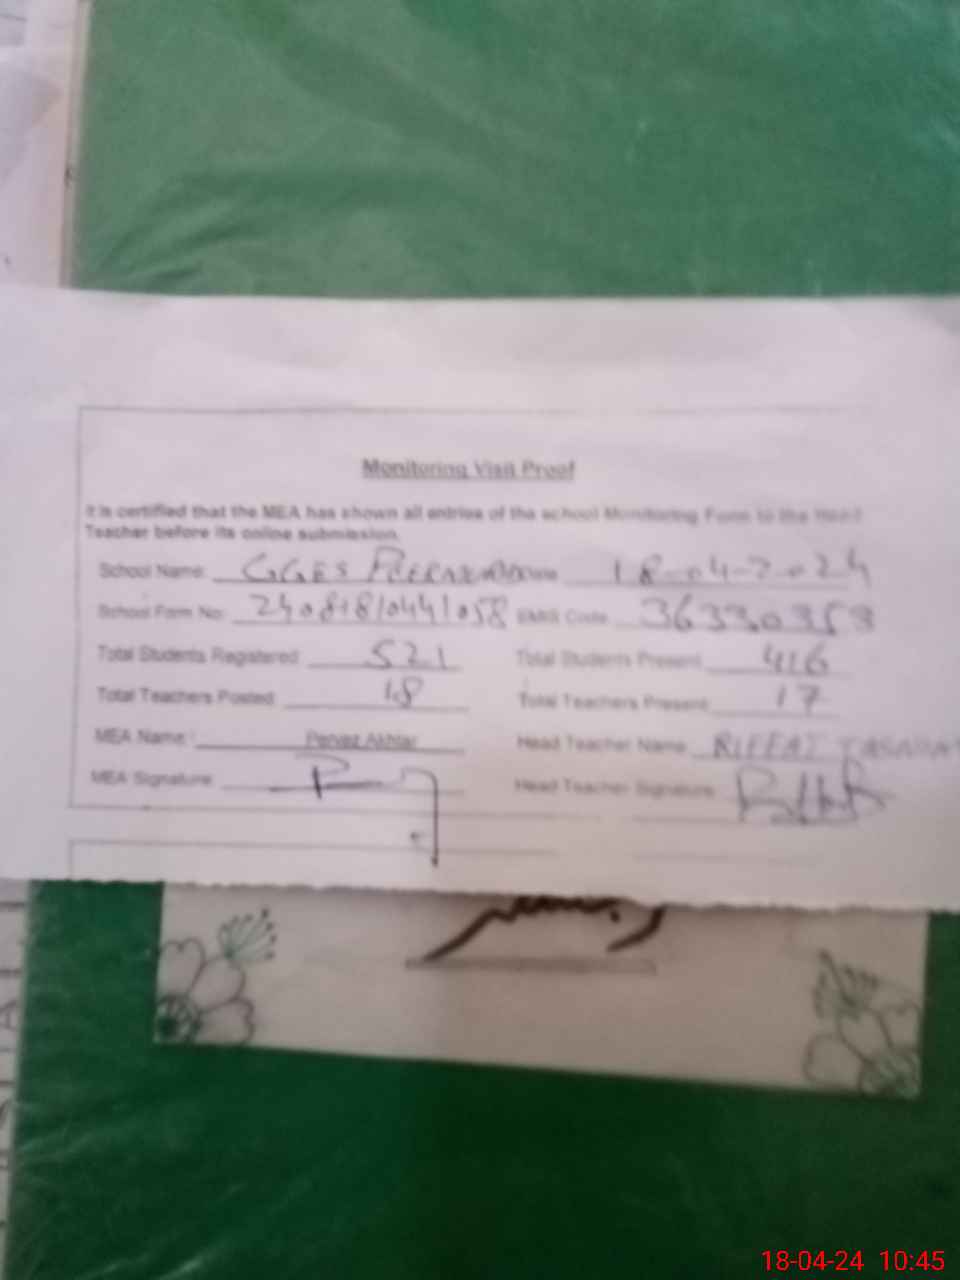 Monitoring Visit Proof
It is certified that the MEA has shown all entries of the school Monitoring Form to the Head
Teacher before its online submission.
School Name: GGES Date 18-04-2024
School Form No: EMIS Code 36330353
Total Students Registered 521 Total Students Present 416
Total Teachers Posted 18 Total Teachers Present 17
MEA Name: Pervez Akhtar Head Teacher Name RIFFAT
MEA Signature Head Teacher Signature
18-04-24 10:45